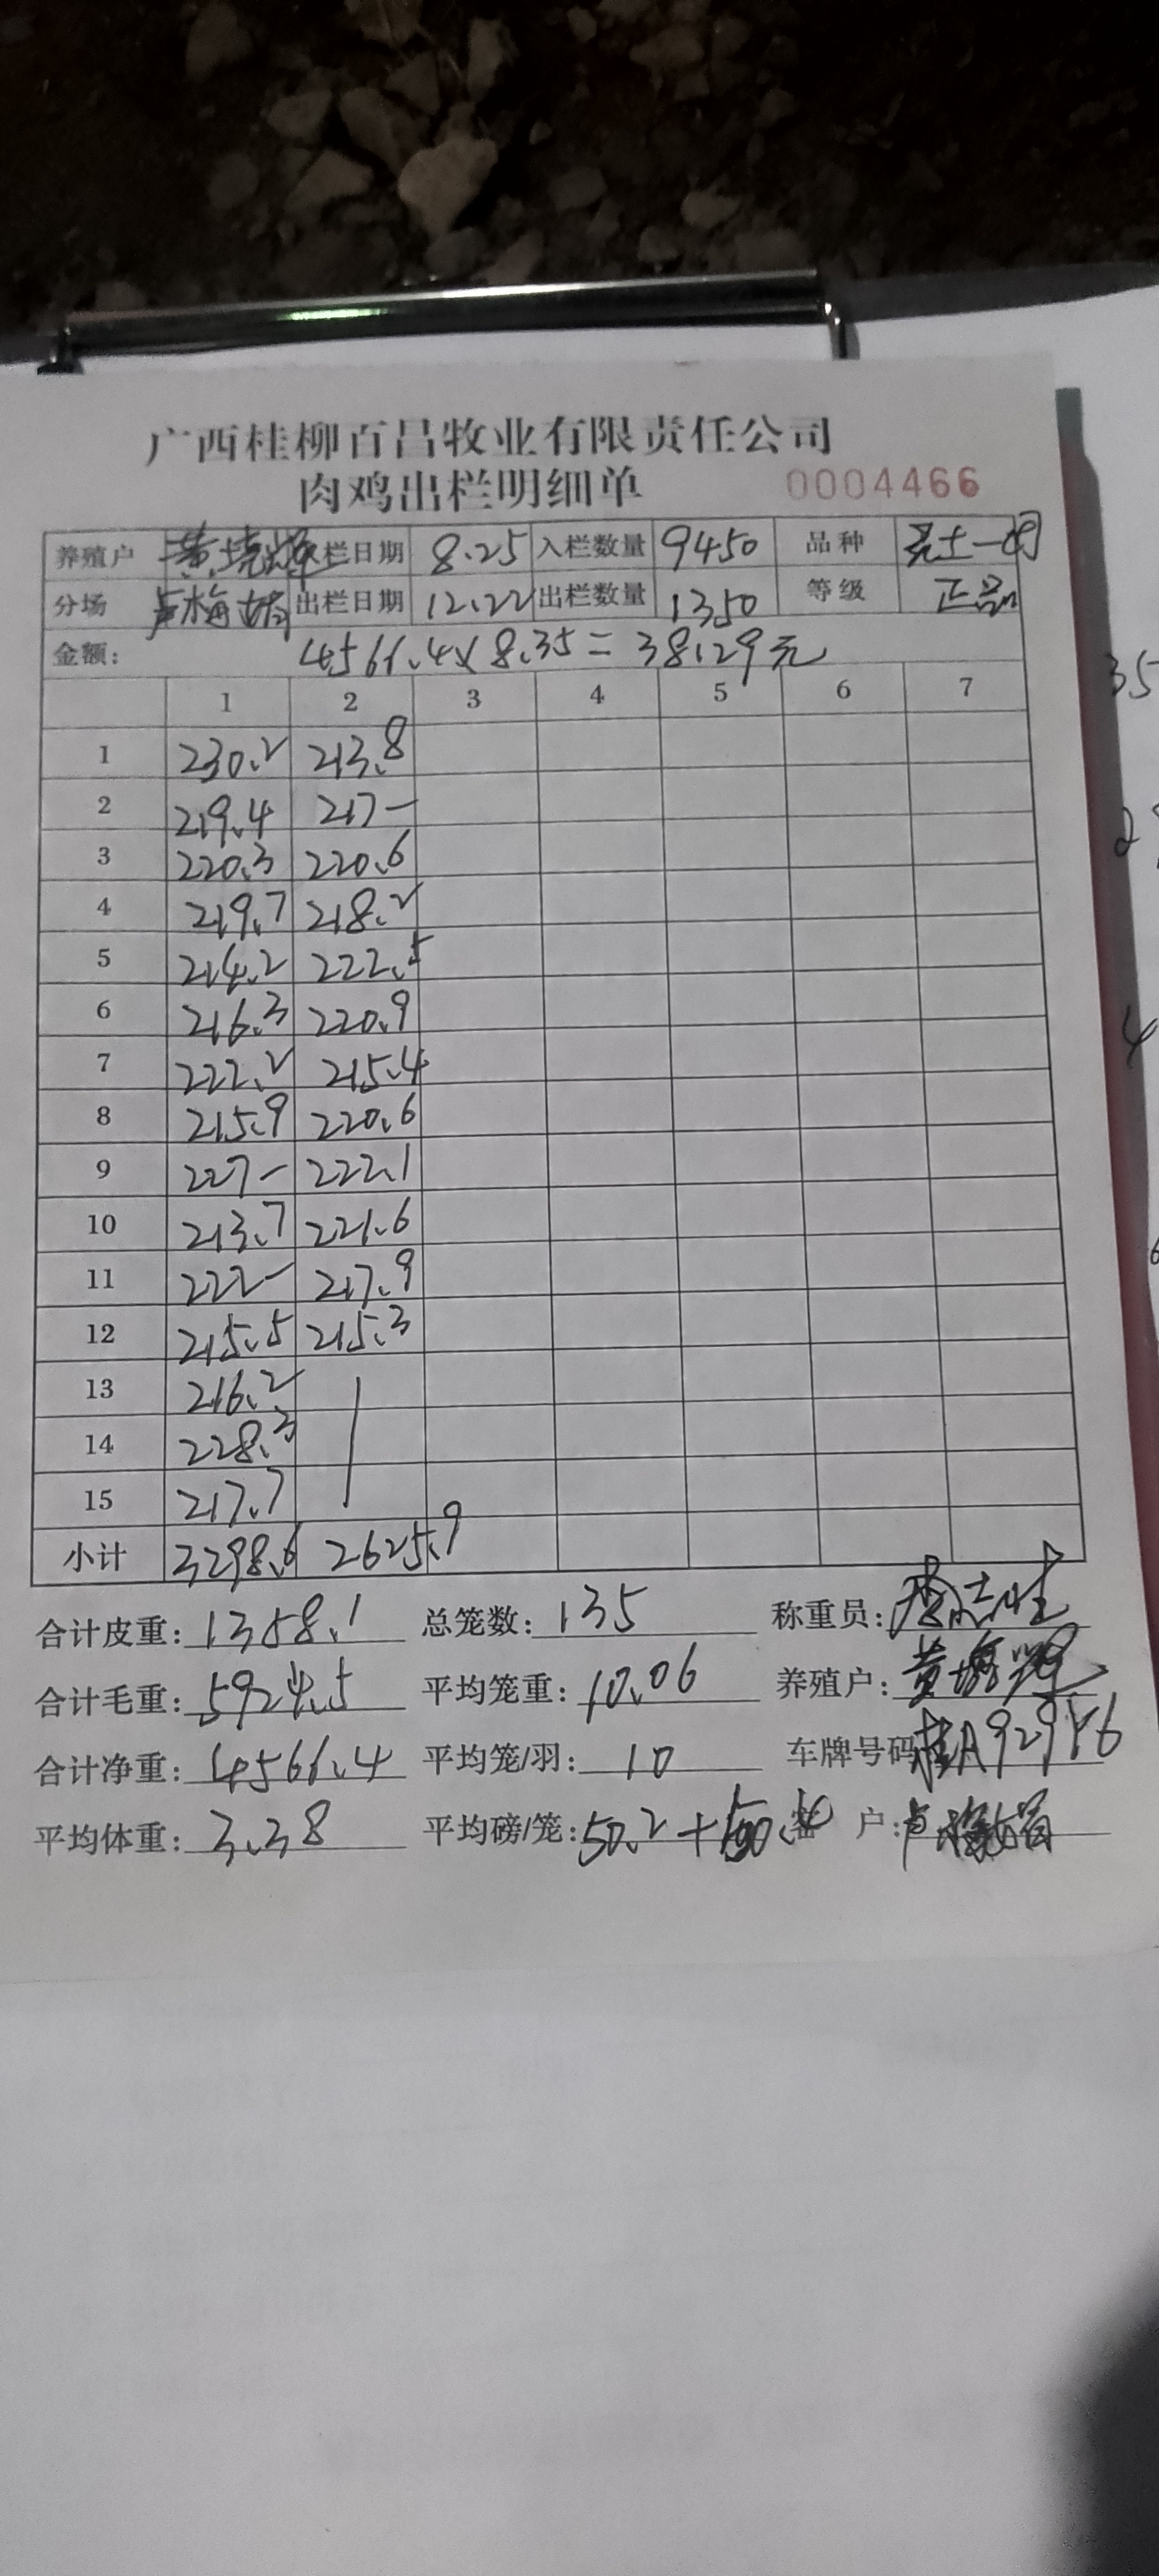 广西桂柳百昌牧业有限责任公司
肉鸡出栏明细单 0004466
养殖户 黄 栏日期 8.25 入栏数量 9450 品种
分场 卢梅 出栏日期 12.22 出栏数量 1350 等级 正品
金额: 4566.4×8.35=38129元
1 2 3 4 5 6 7
1 230.2 213.8
2 219.4 217-
3 220.3 220.6
4 219.7 218.2
5 214.2 222.5
6 216.3 220.9
7 222.2 215.4
8 215.9 220.6
9 227- 222.1
10 213.7 221.6
11 222- 217.9
12 215.5 215.3
13 216.2
14 228.3
15 217.7
小计 3298.6 2625.9
合计皮重: 1358.1 总笼数: 135 称重员:
合计毛重: 5924.5 平均笼重: 10.06 养殖户: 黄
合计净重: 4566.4 平均笼/羽: 10 车牌号码 桂A929
平均体重: 3.38 平均磅/笼: 50.2+ 户: 卢